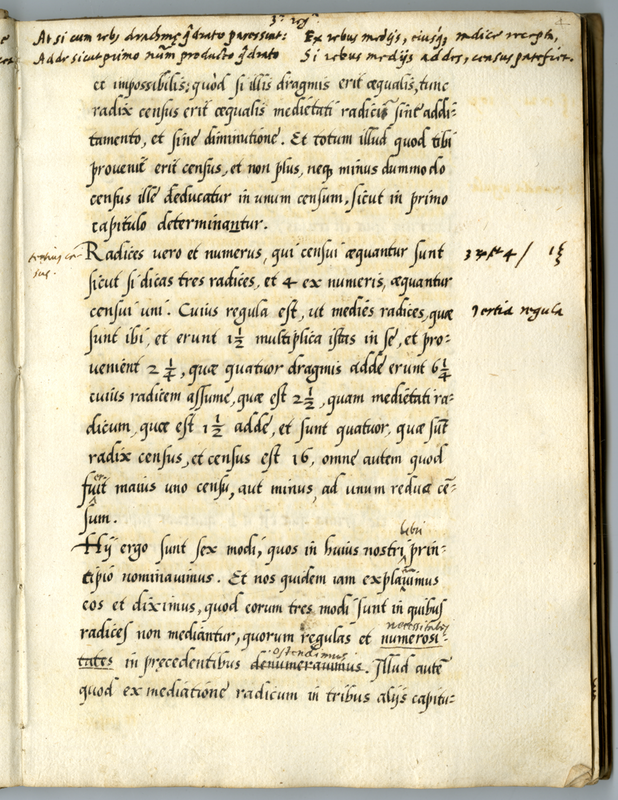 3ᵃ. regᵃ.
4
At si cum rebus drachmę q̃drato pares sunt:
Adde sicut primo num̃ productũ q̃drato
Ex rebus medijs, eiusq̃ radice recepta,
Si rebus medijs addes, census patefiet.
et impossibilis; quòd si illis dragmis erit æqualis, tunc
radix census erit æqualis medietati radicis sine addi-
tamento, et sine diminutione. Et totum illud quod tibi
provenit erit census, et non plus, neq; minus dummodo
census ille deducatur in unum censum, sicut in primo
capitulo determinantur.
Radices vero et numerus, qui censui æquantur sunt
sicut si dicas tres radices, et 4 ex numeris, æquantur
censui uni. Cuius regula est, ut medies radices, quæ
sunt ibi, et erunt 1 1/2 multiplica istas in se, et pro-
venient 2 1/4, quæ quatuor dragmis adde erunt 6 1/4
cuius radicem assume, quæ est 2 1/2, quam medietati ra-
dicum, quæ est 1 1/2 adde, et sunt quatuor, quæ sũt
radix census, et census est 16, omne autem quod
fuit maius uno censu, aut minus, ad unum reduc cẽ-
sum.
Hij ergo sunt sex modi, quos in huius nostri libri prin-
cipio nominavimus. Et nos quidem iam explanavimus
eos et diximus, quod eorum tres modi sunt in quibus
radices non mediantur, quorum regulas et numerosi-
necessitates
tates in præcedentibus denumeravimus. Illud autẽ
ostendimus
quod ex mediatione radicum in tribus alijs capitu-
tertius cẽ-
sus.
Tertia regula